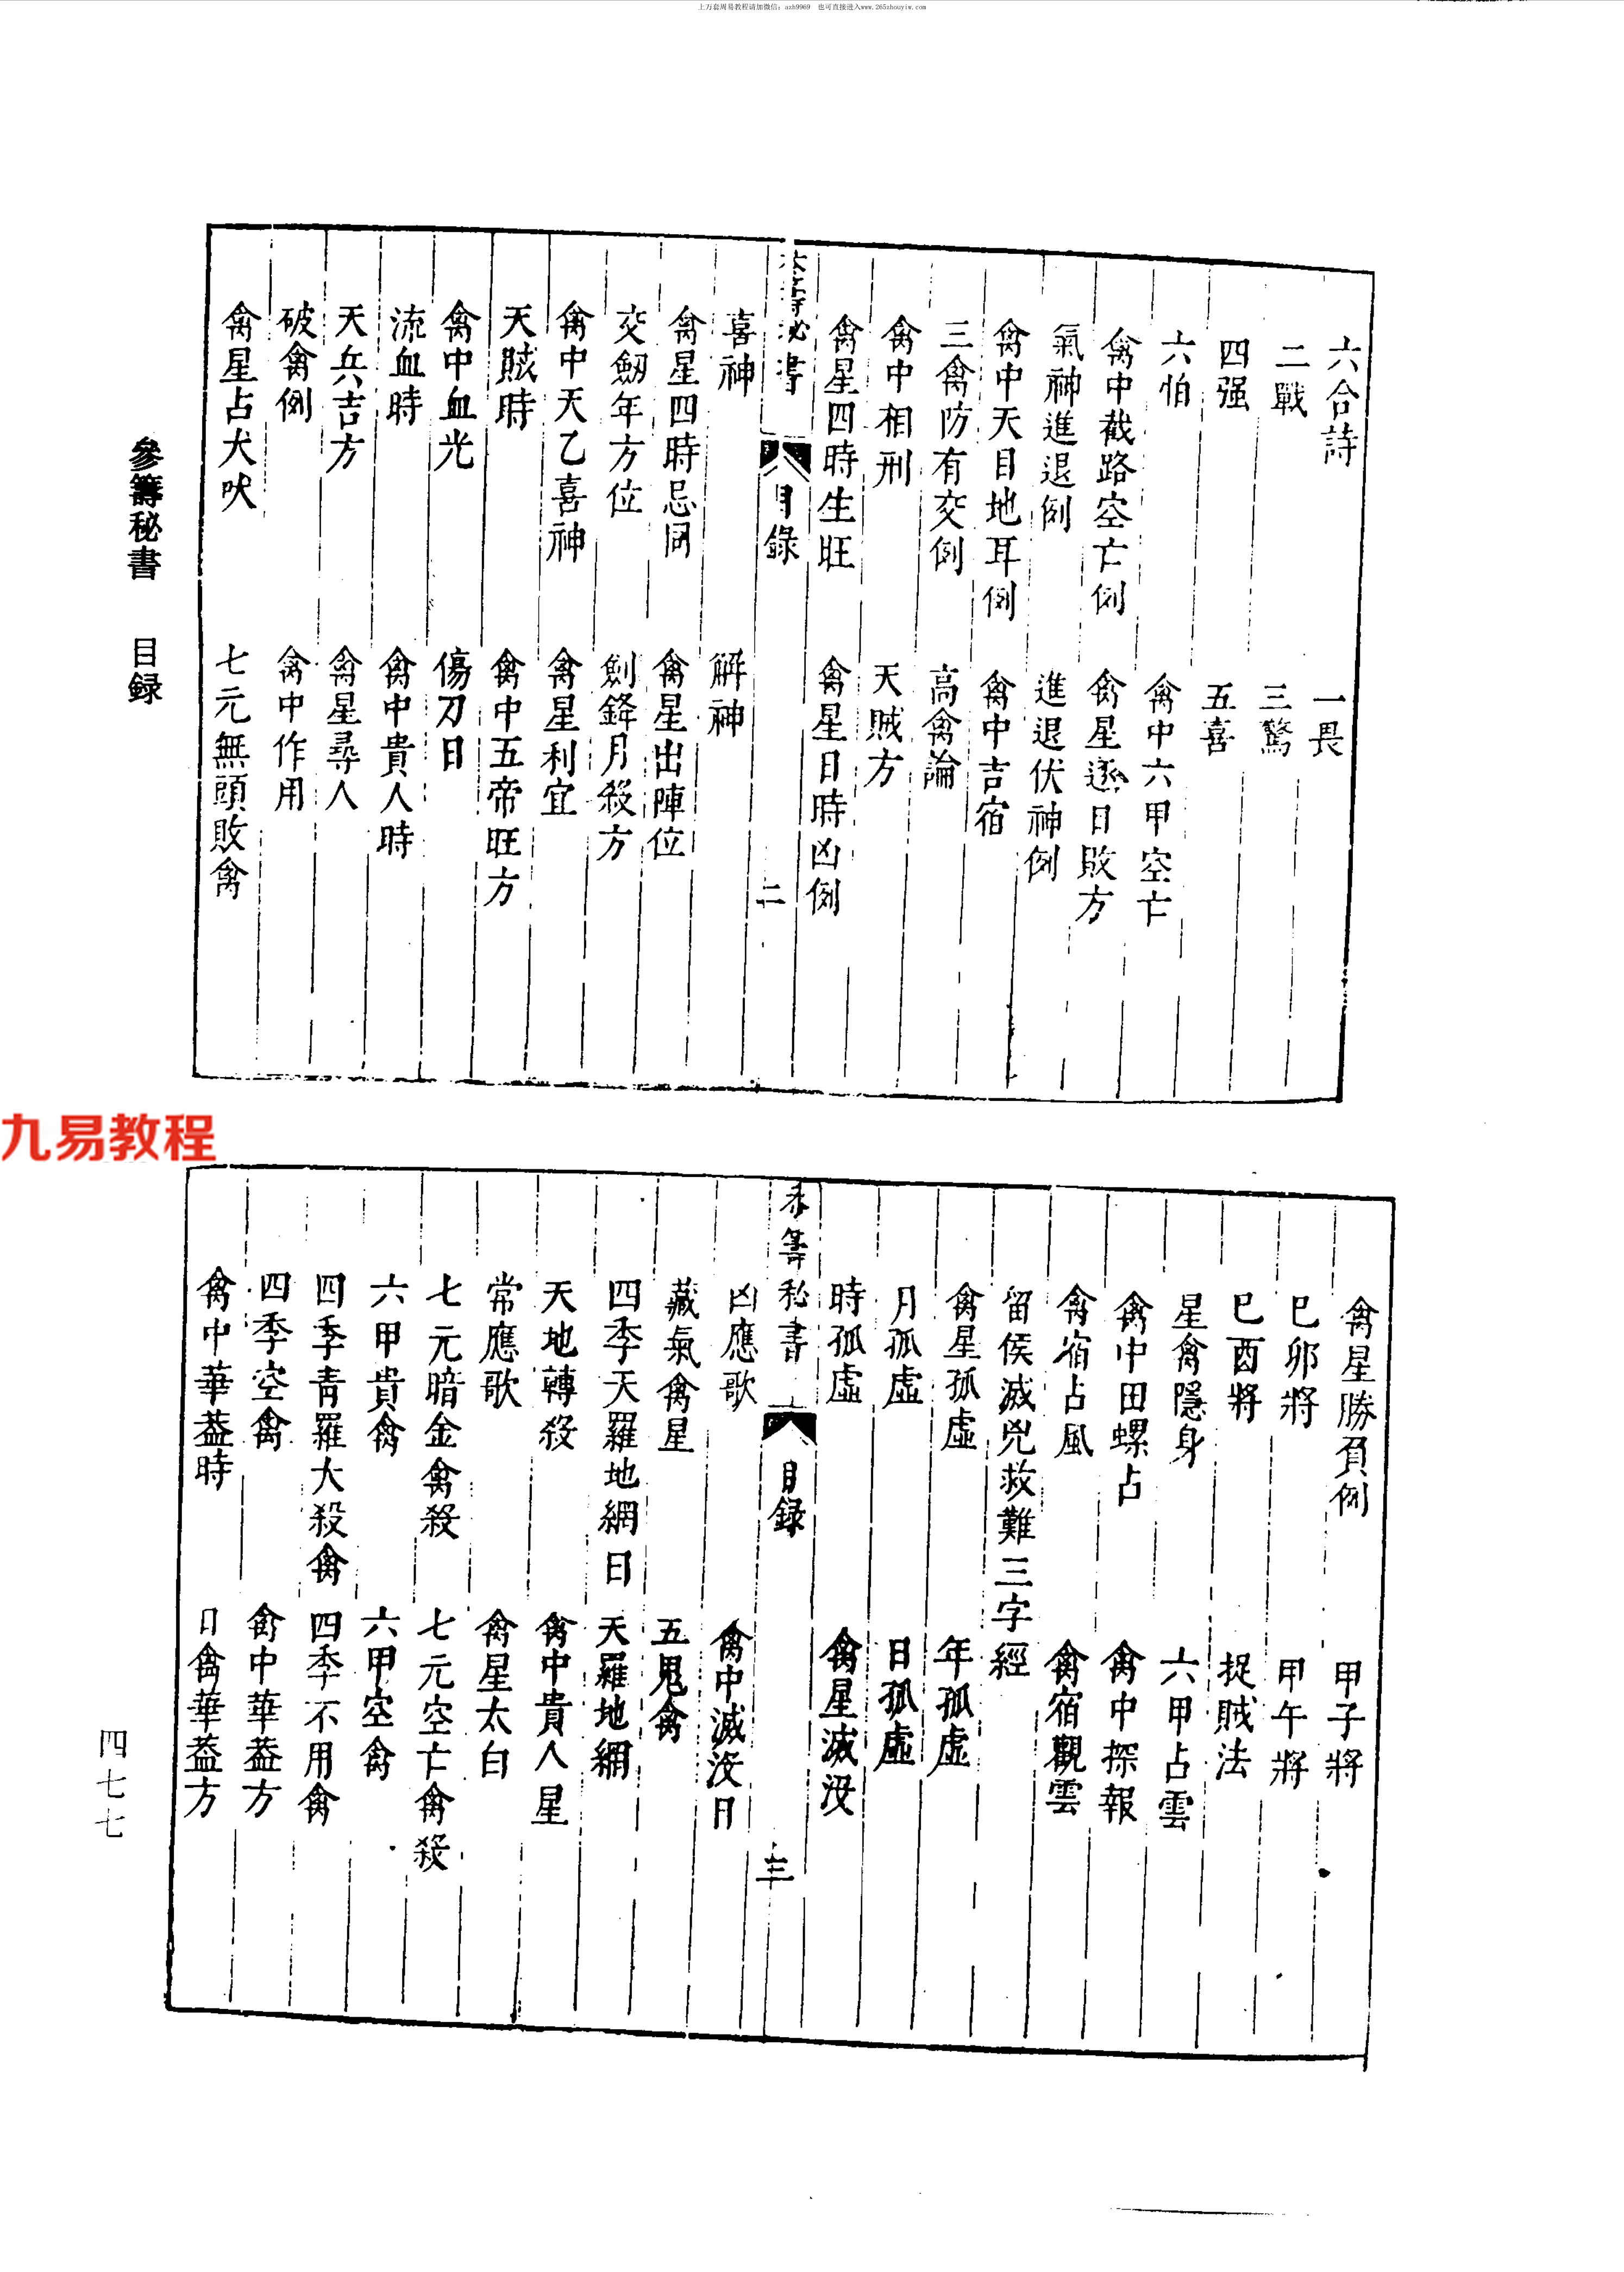 上万套周易教程请加微信：azh9969　也可直接进入www.265zhouyiw.com
六合詩　一畏
二戰　三驚
四强　五喜
六怕　禽中六甲空亡
禽中截路空亡例　禽星逐日敗方
氣神進退例　進退伏神例
禽中天目地耳例　禽中吉宿
三禽防有交例　高禽論
禽中相刑　天賊方
禽星四時生旺　禽星日時凶例
秘書　目錄　二
喜神　解神
禽星四時忌同　禽星出陣位
交劔年方位　劍鋒月殺方
禽中天乙喜神　禽星利宜
天賊時　禽中五帝旺方
禽中血光　傷刀日
流血時　禽中貴人時
天兵吉方　禽星尋人
破禽例　禽中作用
禽星占犬吠　七元無頭敗禽
參籌秘書　目録
九易教程
禽星勝負例　甲子將
巳卯將　甲午將
巳酉將　捉賊法
星禽隱身　六甲占雲
禽中田螺占　禽中探報
禽宿占風　禽宿觀雲
留侯滅兇救難三字經
禽星孤虛　年孤虛
月孤虛　日孤虛
時孤虛　禽星滅没
參籌秘書　目録　三
凶應歌　禽中滅没日
藏氣禽星　五鬼禽
四季天羅地網日　天羅地網
天地轉殺　禽中貴人星
常應歌　禽星太白
七元暗金禽殺　七元空亡禽殺
六甲貴禽　六甲空禽
四季青羅大殺禽　四季不用禽
四季空禽　禽中華葢方
禽中華葢時　日禽華葢方
四七七